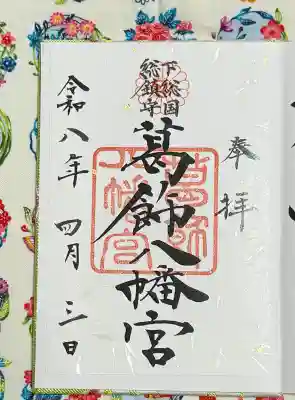 奉拝
下総国
総鎮守
葛飾八幡宮
葛飾
八幡宮
令和八年 四月 三日